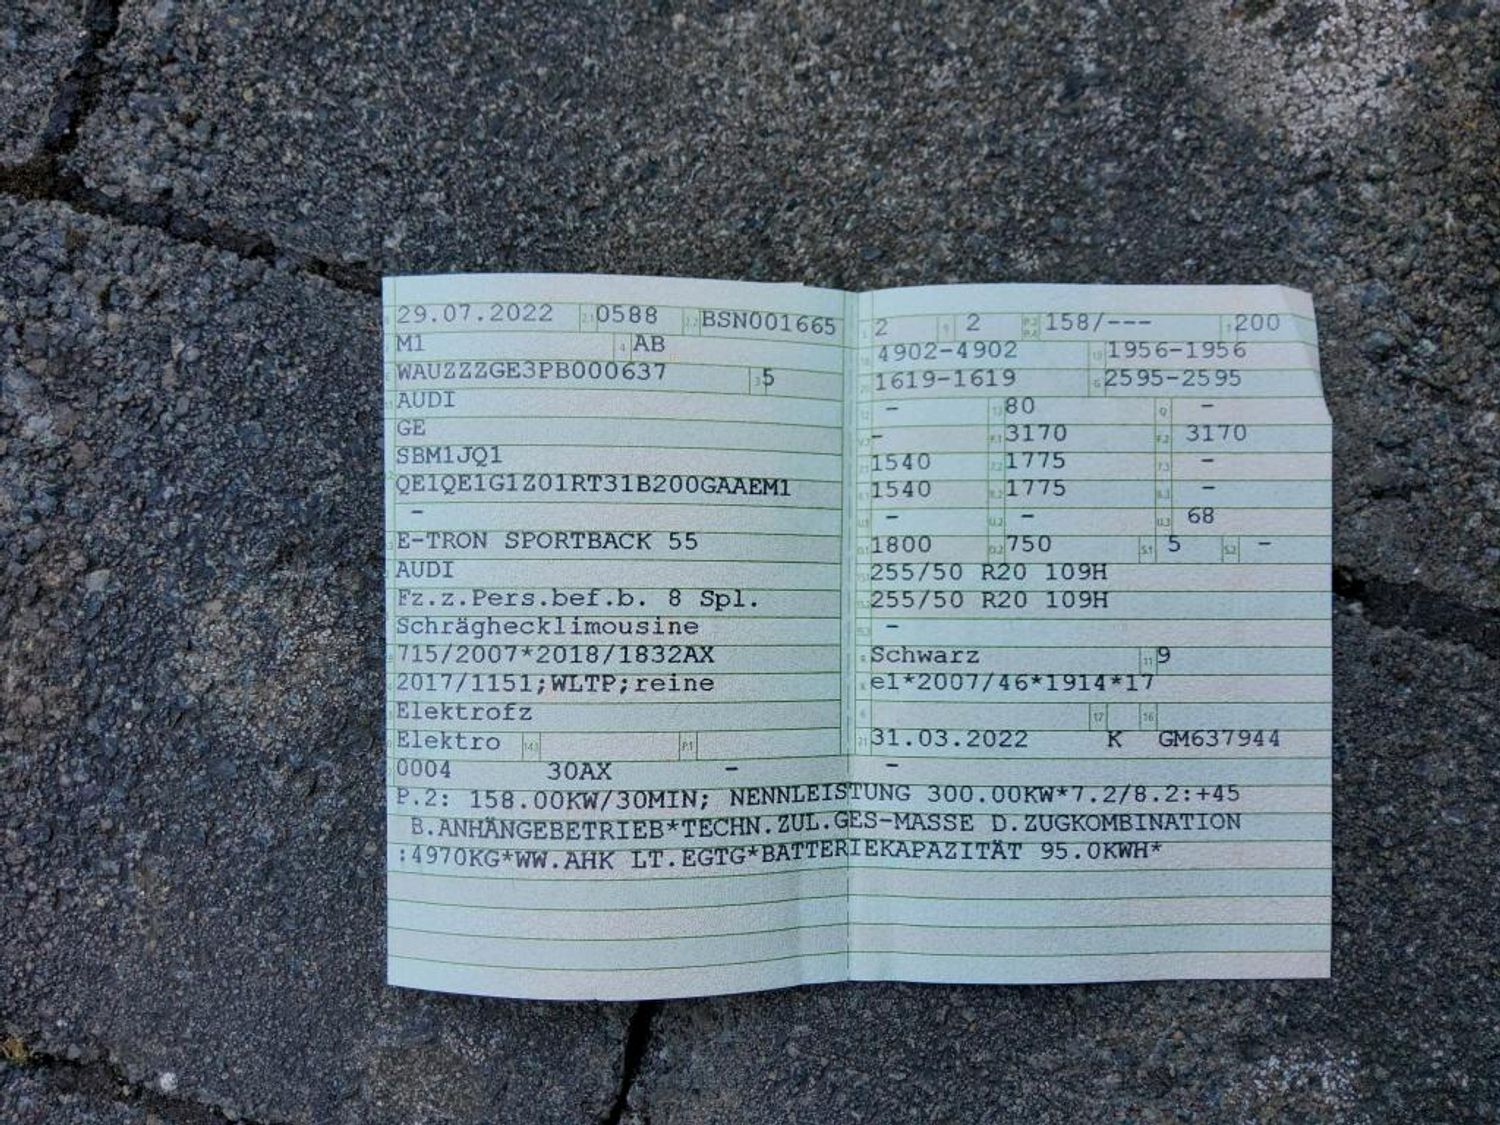 29.07.2022 2.1 0588 2.2 BSN001665
M1 4 AB
WAUZZZGE3PB000637 3 5
AUDI
GE
SBM1JQ1
QE1QE1G1Z01RT31B200GAAEM1
-
E-TRON SPORTBACK 55
AUDI
Fz.z.Pers.bef.b. 8 Spl.
Schräghecklimousine
715/2007*2018/1832AX
2017/1151;WLTP;reine
Elektrofz
Elektro 14.1 P.1
0004 30AX -
2 9 2 P.2 P.4 158/--- T 200
18 4902-4902 19 1956-1956
20 1619-1619 G 2595-2595
12 - 13 80 Q -
V.7 - F.1 3170 F.2 3170
1540 7.2 1775 7.3 -
8.1 1540 8.2 1775 8.3 -
U.1 - U.2 - U.3 68
O.1 1800 O.2 750 S.1 5 S.2 -
15.1 255/50 R20 109H
15.2 255/50 R20 109H
15.3 -
R Schwarz 11 9
K e1*2007/46*1914*17
6 17 16
21 31.03.2022 K GM637944
-
P.2: 158.00KW/30MIN; NENNLEISTUNG 300.00KW*7.2/8.2:+45
B.ANHÄNGEBETRIEB*TECHN.ZUL.GES-MASSE D.ZUGKOMBINATION
:4970KG*WW.AHK LT.EGTG*BATTERIEKAPAZITÄT 95.0KWH*